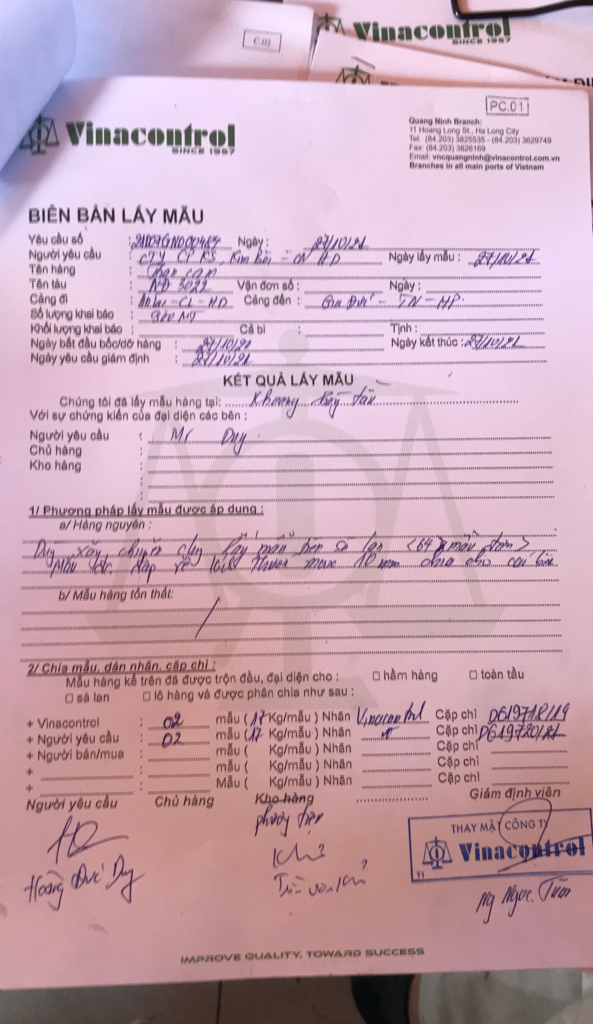 Vinacontrol
SINCE 1957
C.01
PC.01
Vinacontrol
SINCE 1957
Quang Ninh Branch:
11 Hoang Long St., Ha Long City
Tel: (84.203) 3825535 - (84.203) 3629749
Fax: (84.203) 3826169
Email: vncquangninh@vinacontrol.com.vn
Branches in all main ports of Vietnam
BIÊN BẢN LẤY MẪU
Yêu cầu số : Ngày : 27/10/21
Người yêu cầu : CTY CP KS Kim Bôi - CN HD Ngày lấy mẫu : 27/10/21
Tên hàng : Than cám
Tên tàu : NĐ 3022 Vận đơn số : Ngày :
Cảng đi : - CL - HD Cảng đến : - TN - HP
Số lượng khai báo : 900 MT
Khối lượng khai báo : Cả bì : Tịnh :
Ngày bắt đầu bốc/dỡ hàng : 27/10/21 Ngày kết thúc : 27/10/21
Ngày yêu cầu giám định : 27/10/21
KẾT QUẢ LẤY MẪU
Chúng tôi đã lấy mẫu hàng tại:
Với sự chứng kiến của đại diện các bên :
Người yêu cầu : Mr Duy
Chủ hàng :
Kho hàng :
1/ Phương pháp lấy mẫu được áp dụng :
a/ Hàng nguyên :
lấy mẫu trên sà lan <64 mẫu đơn>
10 mm chia cho các bên
b/ Mẫu hàng tổn thất:
/
2/ Chia mẫu, dán nhãn, cặp chì :
Mẫu hàng kể trên đã được trộn đều, đại diện cho : □ hầm hàng □ toàn tầu
□ sà lan □ lô hàng và được phân chia như sau :
+ Vinacontrol : 02 mẫu ( 17 Kg/mẫu ) Nhãn Vinacontrol Cặp chì D619718/19
+ Người yêu cầu : 02 mẫu ( 17 Kg/mẫu ) Nhãn Cặp chì D619720/21
+ Người bán/mua : mẫu ( Kg/mẫu ) Nhãn Cặp chì
+ : mẫu ( Kg/mẫu ) Nhãn Cặp chì
+ : Mẫu ( Kg/mẫu ) Nhãn Cặp chì
Người yêu cầu Chủ hàng Kho hàng Giám định viên
phương tiện
THAY MẶT CÔNG TY
Vinacontrol
11
Hoàng Đức Duy
Trần Văn Khả
Ng Ngọc
IMPROVE QUALITY, TOWARD SUCCESS